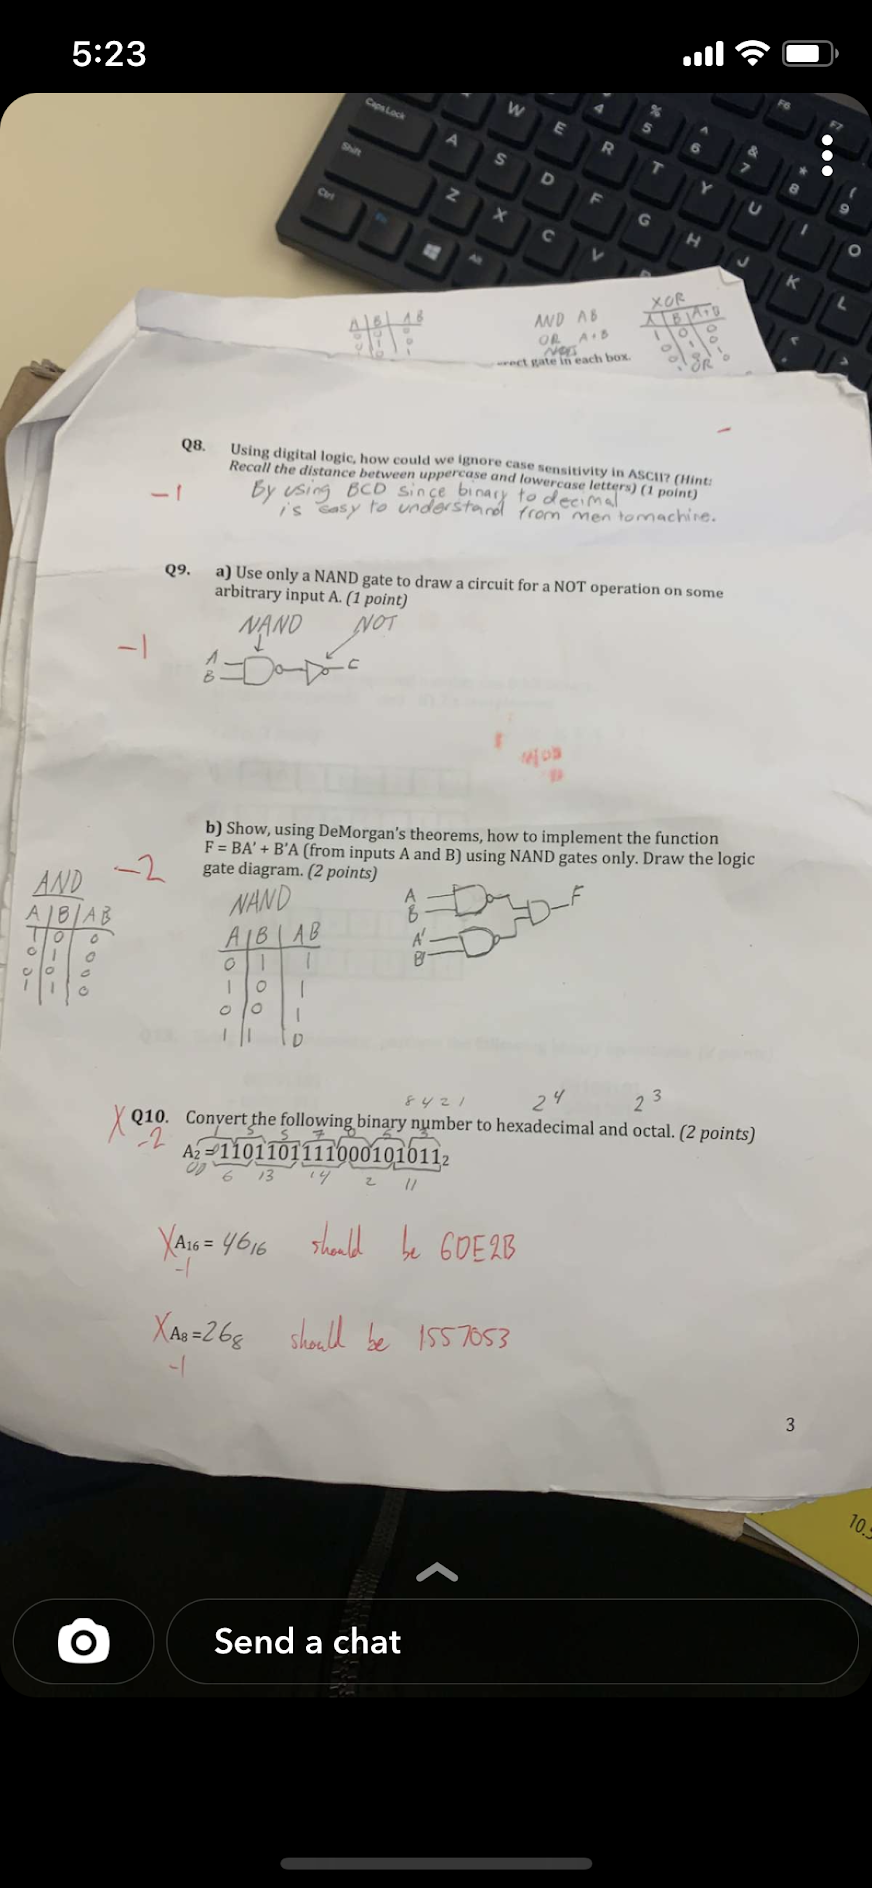 5:23
Caps Lock
Shift
Ctrl
Fn
Alt
W
E
R
T
Y
U
I
O
A
S
D
F
G
H
J
K
L
Z
X
C
V
4
%
5
^
6
&
7
*
8
(
9
F6
F7
A B AB
AND AB
OR A+B
XOR
A B A+B
OR
rect gate in each box.
Q8. Using digital logic, how could we ignore case sensitivity in ASCII? (Hint:
Recall the distance between uppercase and lowercase letters) (1 point)
-1
By using BCD since binary to decimal
is easy to understand from men to machine.
Q9. a) Use only a NAND gate to draw a circuit for a NOT operation on some
arbitrary input A. (1 point)
NAND NOT
-1
A
B
C
b) Show, using DeMorgan's theorems, how to implement the function
F = BA' + B'A (from inputs A and B) using NAND gates only. Draw the logic
gate diagram. (2 points)
-2
AND
A B AB
1 0 0
0 1 0
0 0 0
1 1 0
NAND
A B AB
0 1 1
1 0 1
0 0 1
1 1 0
A
B
A'
B'
F
8 4 2 1 2^4 2^3
X Q10. Convert the following binary number to hexadecimal and octal. (2 points)
-2
1 5 5 7 0 5 3
A2 = 1101101111000101011₂
6 13 14 2 11
X A16 = 46₁₆ should be 6DE2B
-1
X A8 = 26₈ should be 1557053
-1
3
10.
Send a chat